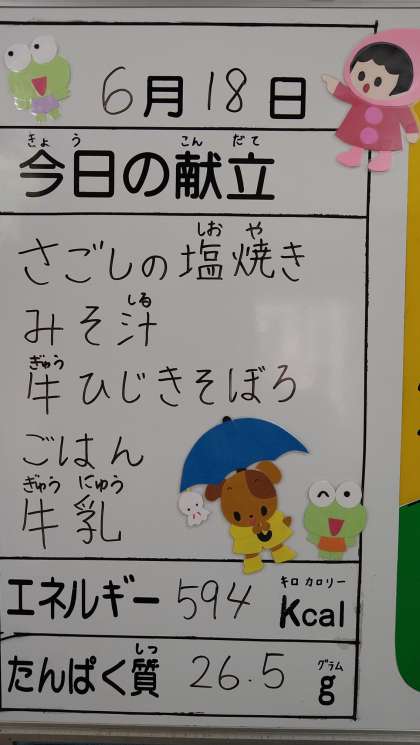 6月18日
きょう こんだて
今日の献立
しお や
さごしの塩焼き
しる
みそ汁
ぎゅう
牛ひじきそぼろ
ごはん
ぎゅう にゅう
牛乳
キロ カロリー
エネルギー 594 Kcal
しつ グラム
たんぱく質 26.5 g